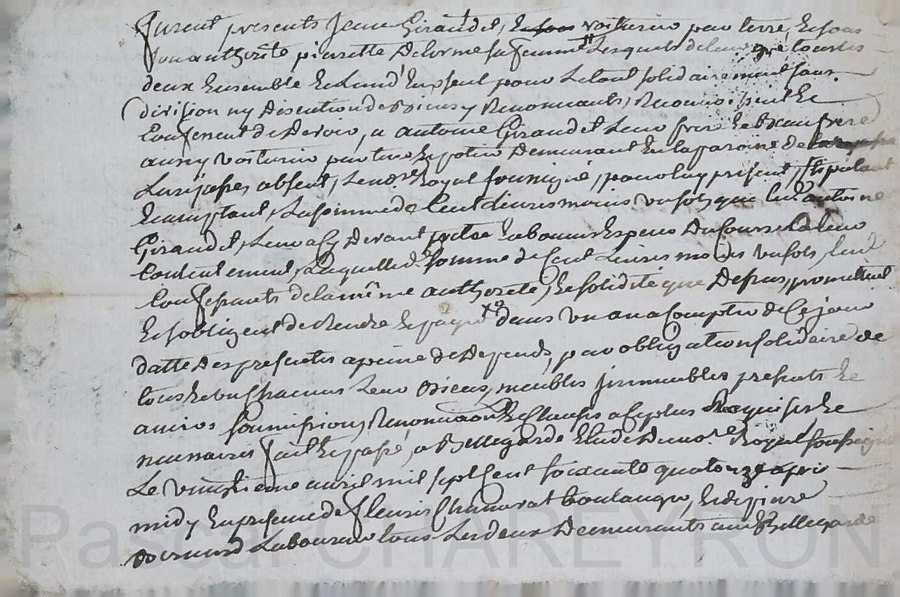 furent presents Jean Girardet, voiturier par terre, et sous
son authorité pierrette Delorme sa femme Lesquels de leur gré tous les
deux Ensemble et Lun d'Eux seul pour Le tout solidairement sans
division ny Discution de Biens y Renonceants, Reconnoissent Et
Confessent de devoir, a antoine Girardet Leur frere et Beaufrere
aussy voiturier par terre Demeurant En la paroisse de
absent, Le no.re Royal soussigné, pour luy present, stipulant
Et acceptant, La somme de Cent Livres moins un sol, que led. antoine
Girardet, Leur a cy Devant En bonnes Especes Du Cours a Leur
Contentement, Laquelle d. somme de Cent Livres moins un sols, lesd.
Confessants de la même authorité, Et solidité que Dessus, promettent
Et s'obligent de Rendre Et payer dans un an a Compter de Ce jour
datte Des presentes a peine de Depends, par obligation solidaire de
tous Et un Chacuns Leurs Biens, meubles, immeubles presents Et
avenirs soumissions, Renonciations Et Clauses a ce plus Requises Et
necessaires fait Et passé, a Bellegarde Etude Du no.re Royal soussigné
Le vingtieme avril mil sept Cent soixante quatorze apres
midy En presence de fleury boulanger, Et de pierre
Laboureur tous Les deux Demeurants aud. Bellegarde
Pascal CHAREYRON